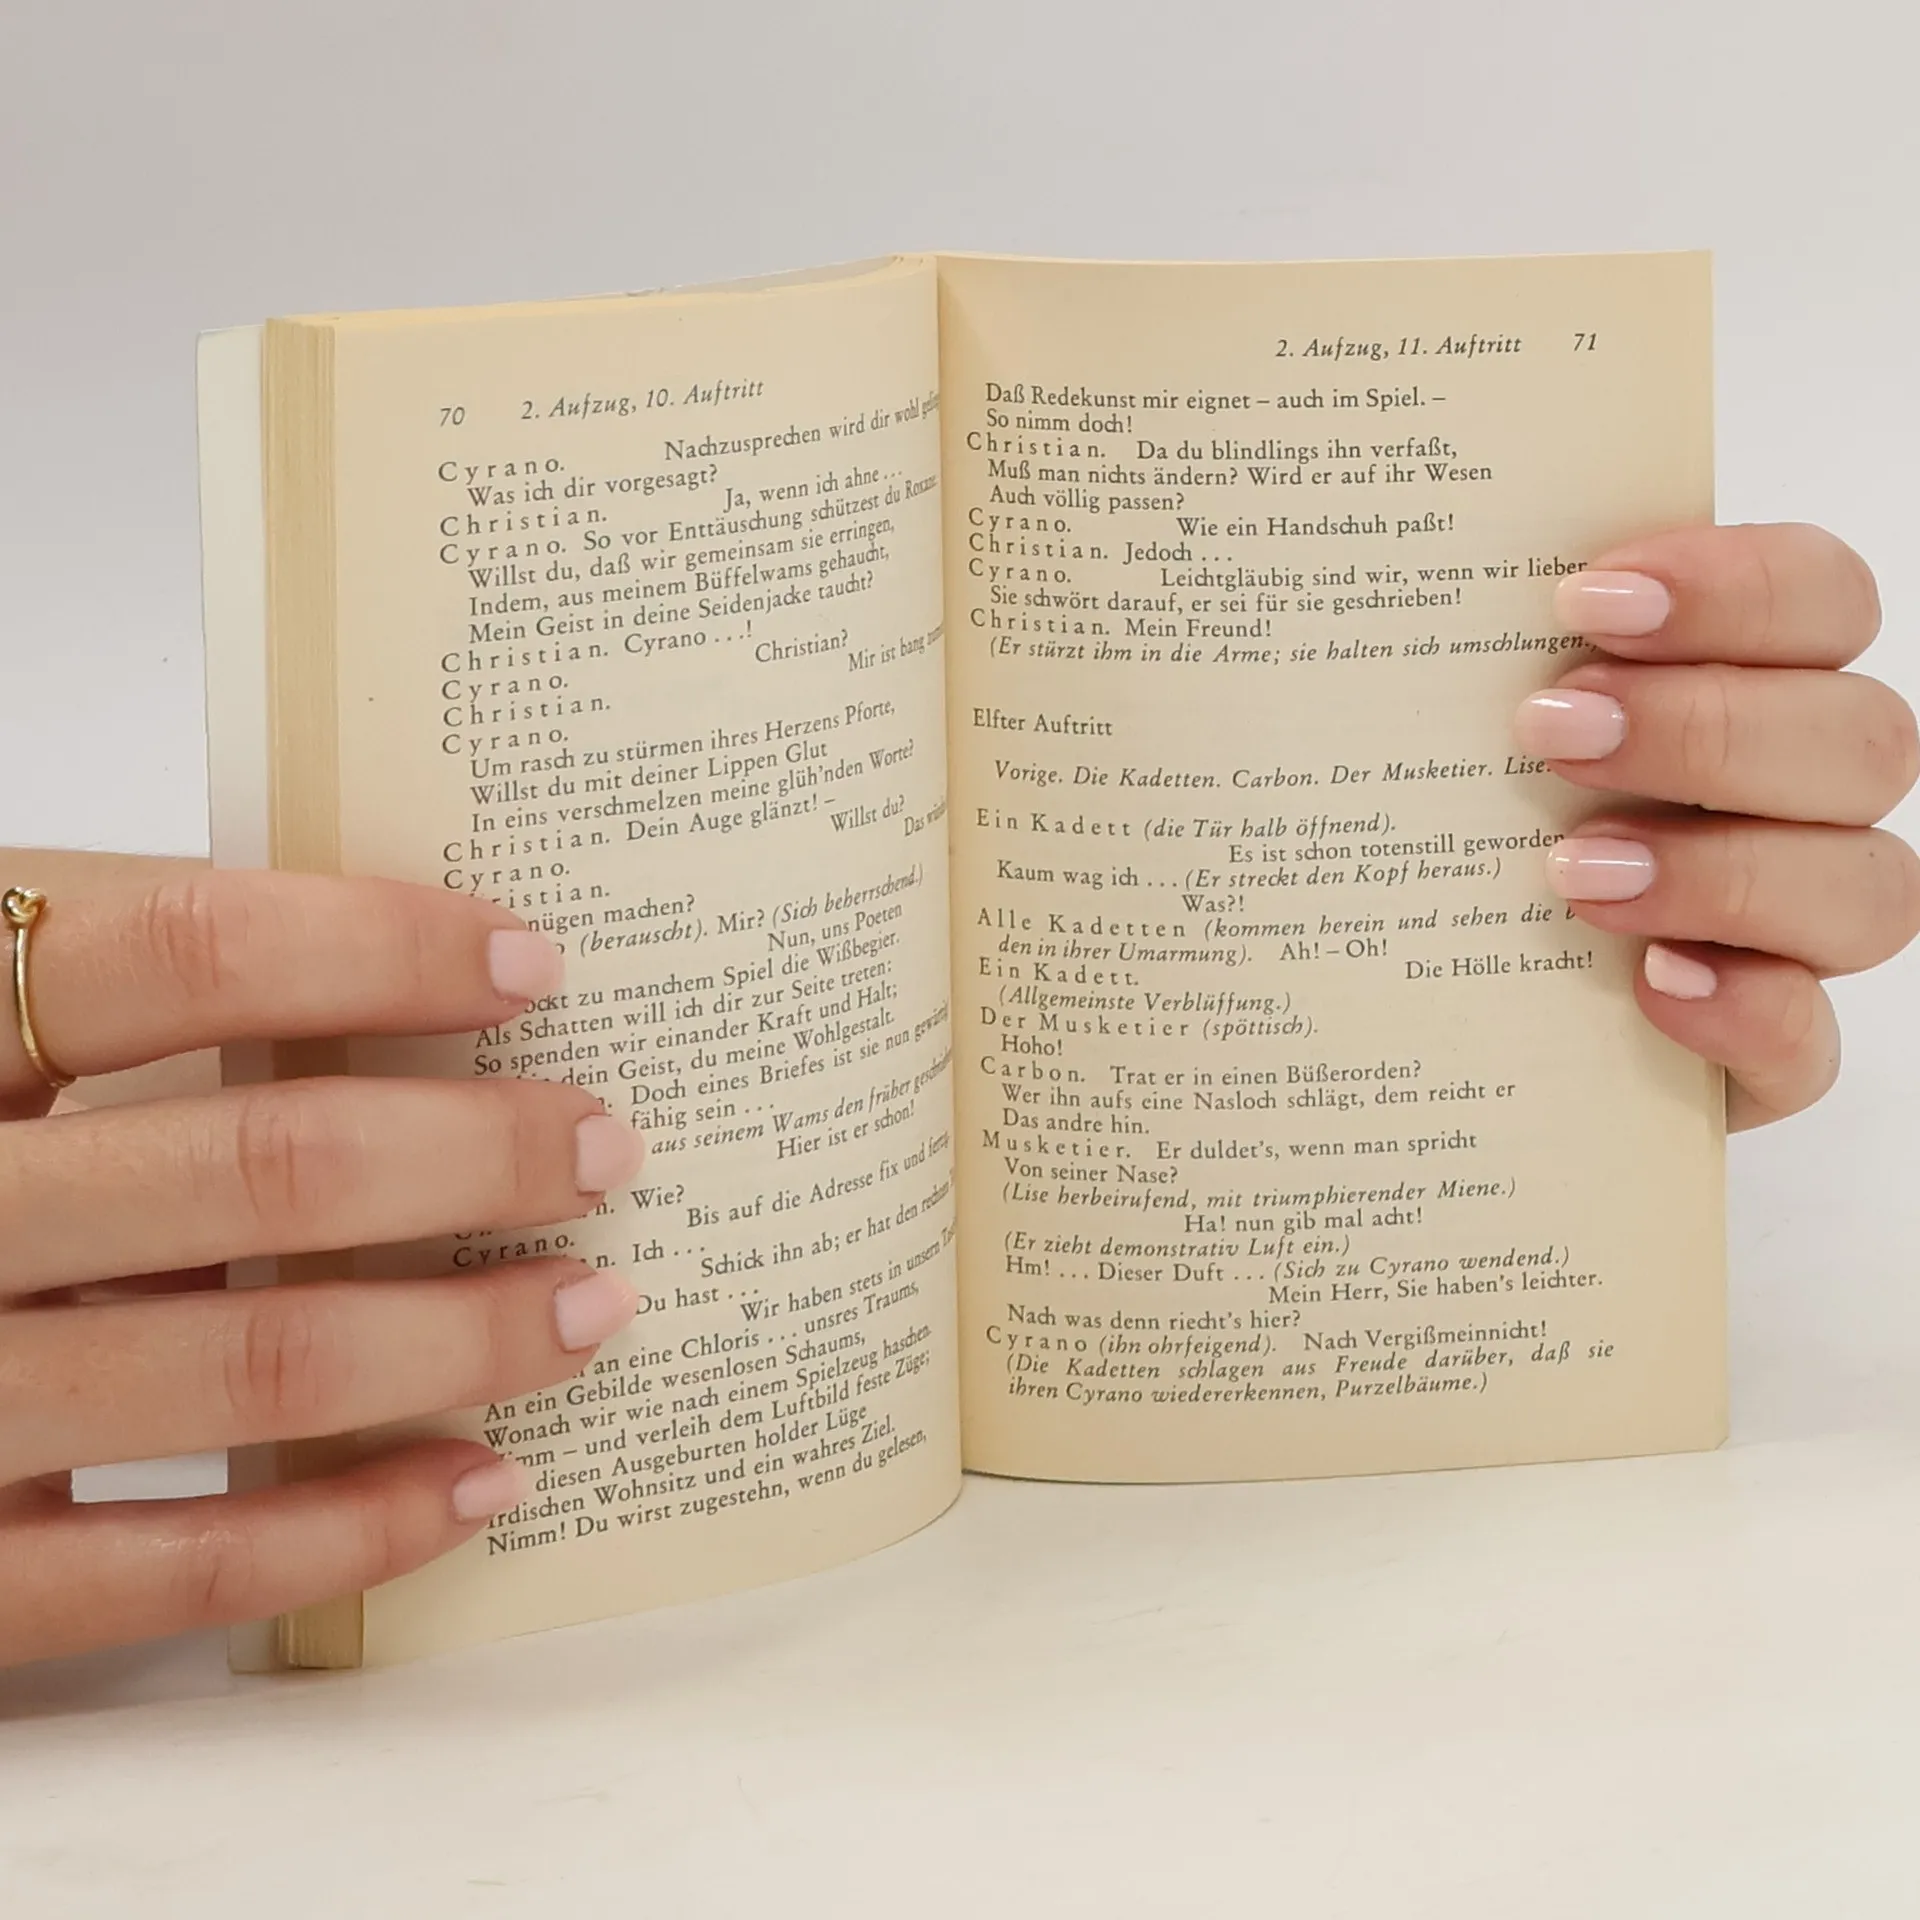 70 2. Aufzug, 10. Auftritt
Cyrano. Nachzusprechen wird dir wohl
Was ich dir vorgesagt?
Christian. Ja, wenn ich ahne ...
Cyrano. So vor Enttäuschung schützest du Roxane.
Willst du, daß wir gemeinsam sie erringen,
Indem, aus meinem Büffelwams gehaucht,
Mein Geist in deine Seidenjacke taucht?
Christian. Cyrano ...!
Cyrano. Christian?
Christian. Mir ist bang
Cyrano.
Um rasch zu stürmen ihres Herzens Pforte,
Willst du mit deiner Lippen Glut
In eins verschmelzen meine glüh'nden Worte?
Christian. Dein Auge glänzt! –
Cyrano. Willst du?
ristian. Das
nügen machen?
(berauscht). Mir? (Sich beherrschend.)
Nun, uns Poeten
ockt zu manchem Spiel die Wißbegier.
Als Schatten will ich dir zur Seite treten:
So spenden wir einander Kraft und Halt;
dein Geist, du meine Wohlgestalt.
Doch eines Briefes ist sie nun
fähig sein ...
aus seinem Wams den früher
Hier ist er schon!
n. Wie?
Cyrano. Bis auf die Adresse fix und
n. Ich ...
Schick ihn ab; er hat den rechten
Du hast ...
Wir haben stets in unsern
an eine Chloris ... unsres Traums,
An ein Gebilde wesenlosen Schaums,
Wonach wir wie nach einem Spielzeug haschen.
imm – und verleih dem Luftbild feste Züge;
diesen Ausgeburten holder Lüge
irdischen Wohnsitz und ein wahres Ziel.
Nimm! Du wirst zugestehn, wenn du gelesen,
2. Aufzug, 11. Auftritt 71
Daß Redekunst mir eignet – auch im Spiel. –
So nimm doch!
Christian. Da du blindlings ihn verfaßt,
Muß man nichts ändern? Wird er auf ihr Wesen
Auch völlig passen?
Cyrano. Wie ein Handschuh paßt!
Christian. Jedoch ...
Cyrano. Leichtgläubig sind wir, wenn wir lieben
Sie schwört darauf, er sei für sie geschrieben!
Christian. Mein Freund!
(Er stürzt ihm in die Arme; sie halten sich umschlungen.)
Elfter Auftritt
Vorige. Die Kadetten. Carbon. Der Musketier. Lise.
Ein Kadett (die Tür halb öffnend).
Es ist schon totenstill geworden
Kaum wag ich ... (Er streckt den Kopf heraus.)
Was?!
Alle Kadetten (kommen herein und sehen die
den in ihrer Umarmung). Ah! – Oh!
Ein Kadett. Die Hölle kracht!
(Allgemeinste Verblüffung.)
Der Musketier (spöttisch).
Hoho!
Carbon. Trat er in einen Büßerorden?
Wer ihn aufs eine Nasloch schlägt, dem reicht er
Das andre hin.
Musketier. Er duldet's, wenn man spricht
Von seiner Nase?
(Lise herbeirufend, mit triumphierender Miene.)
Ha! nun gib mal acht!
(Er zieht demonstrativ Luft ein.)
Hm! ... Dieser Duft ... (Sich zu Cyrano wendend.)
Mein Herr, Sie haben's leichter.
Nach was denn riecht's hier?
Cyrano (ihn ohrfeigend). Nach Vergißmeinnicht!
(Die Kadetten schlagen aus Freude darüber, daß sie
ihren Cyrano wiedererkennen, Purzelbäume.)